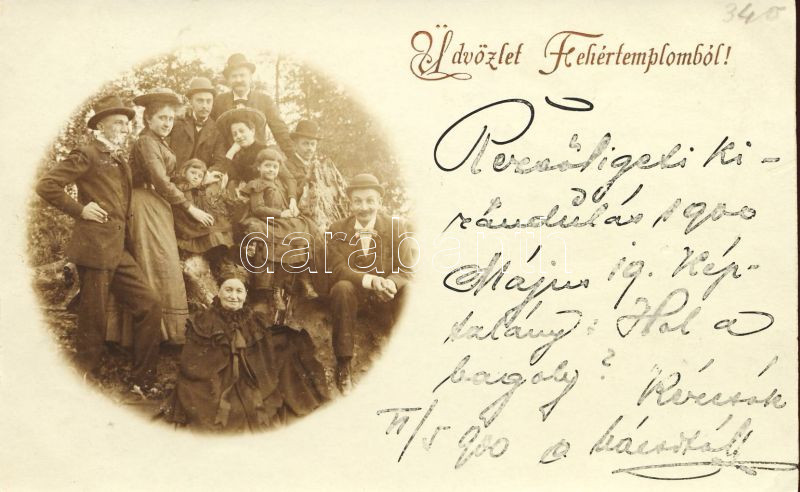 340
Üdvözlet Fehértemplomból!
Rezsőligeti ki-
rándulás 1900
Május 19. Kép-
talány: Hol a
bagoly?
II/5 900 a
darabanth